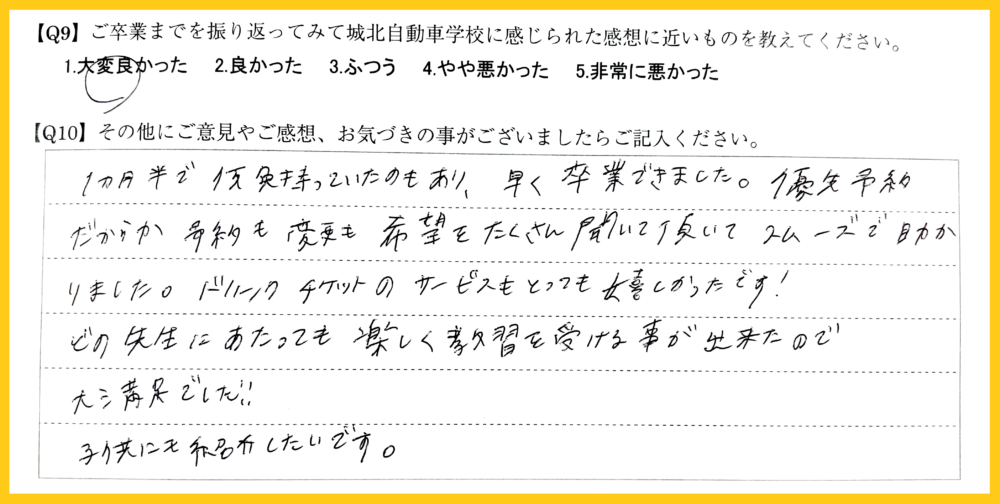 【Q9】ご卒業までを振り返ってみて城北自動車学校に感じられた感想に近いものを教えてください。
1.大変良かった 2.良かった 3.ふつう 4.やや悪かった 5.非常に悪かった
【Q10】その他にご意見やご感想、お気づきの事がございましたらご記入ください。
1カ月半で仮免持っていたのもあり、早く卒業できました。優先予約
だからか予約も変更も希望をたくさん聞いて頂いてスムーズで助か
りました。ドリンクチケットのサービスもとっても嬉しかったです!
どの先生にあたっても楽しく教習を受ける事が出来たので
大満足でした!!
子供にも紹介したいです。